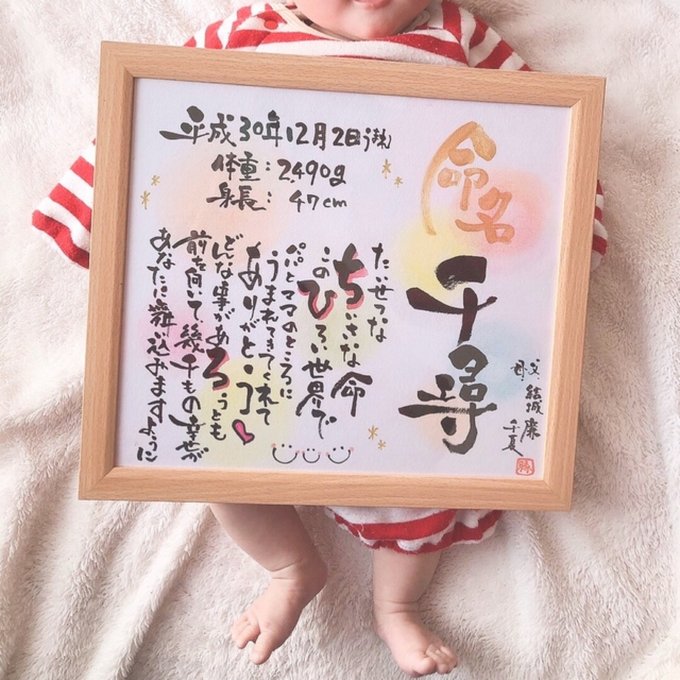 命名
千尋
父 結城 廉
母 千夏
平成30年12月2日
体重：2,490g
身長：47cm
たいせつな
ちいさな命
このひろい世界で
パパとママのところに
うまれてきてくれて
ありがとう
どんな事があろうとも
前を向いて、幾千もの幸せが
あなたに舞い込みますように